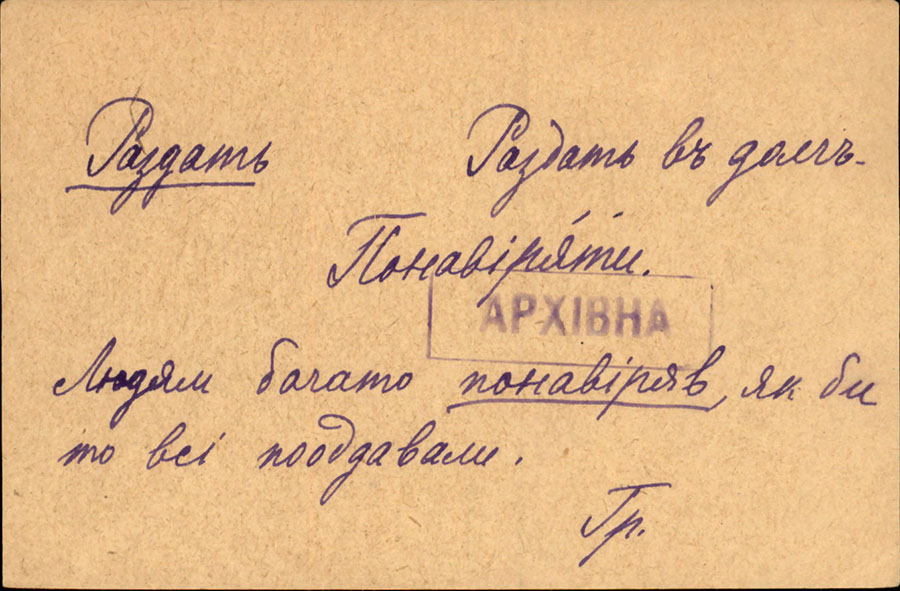 Раздать Раздать въ долгъ.
Понавіря́ти.
АРХІВНА
Людям богато понавіряв, як би
то всі пооддавали.
Гр.